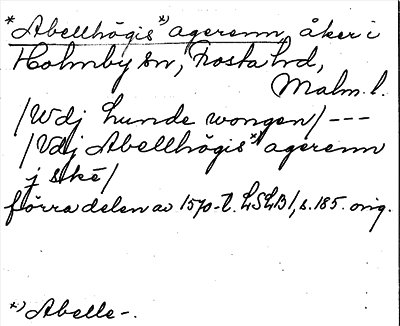 *Abellhögis*) agerenn, åker i
Holmby sn, Frosta hd,
Malm. l.
/Wdj Lunde wongen/ ---
/Vdj Abellhögis*) agerenn
j ské/
förra delen av 1570-t. LSLB 1, s. 185. orig.
*) Abelle-.